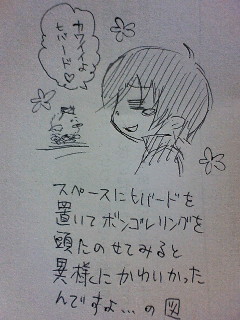 カワイイよ
ヒバードたん♡
スペースにヒバードを
置いてボンゴレリングを
頭にのせてみると
異様にかわいかった
んですよ…の図